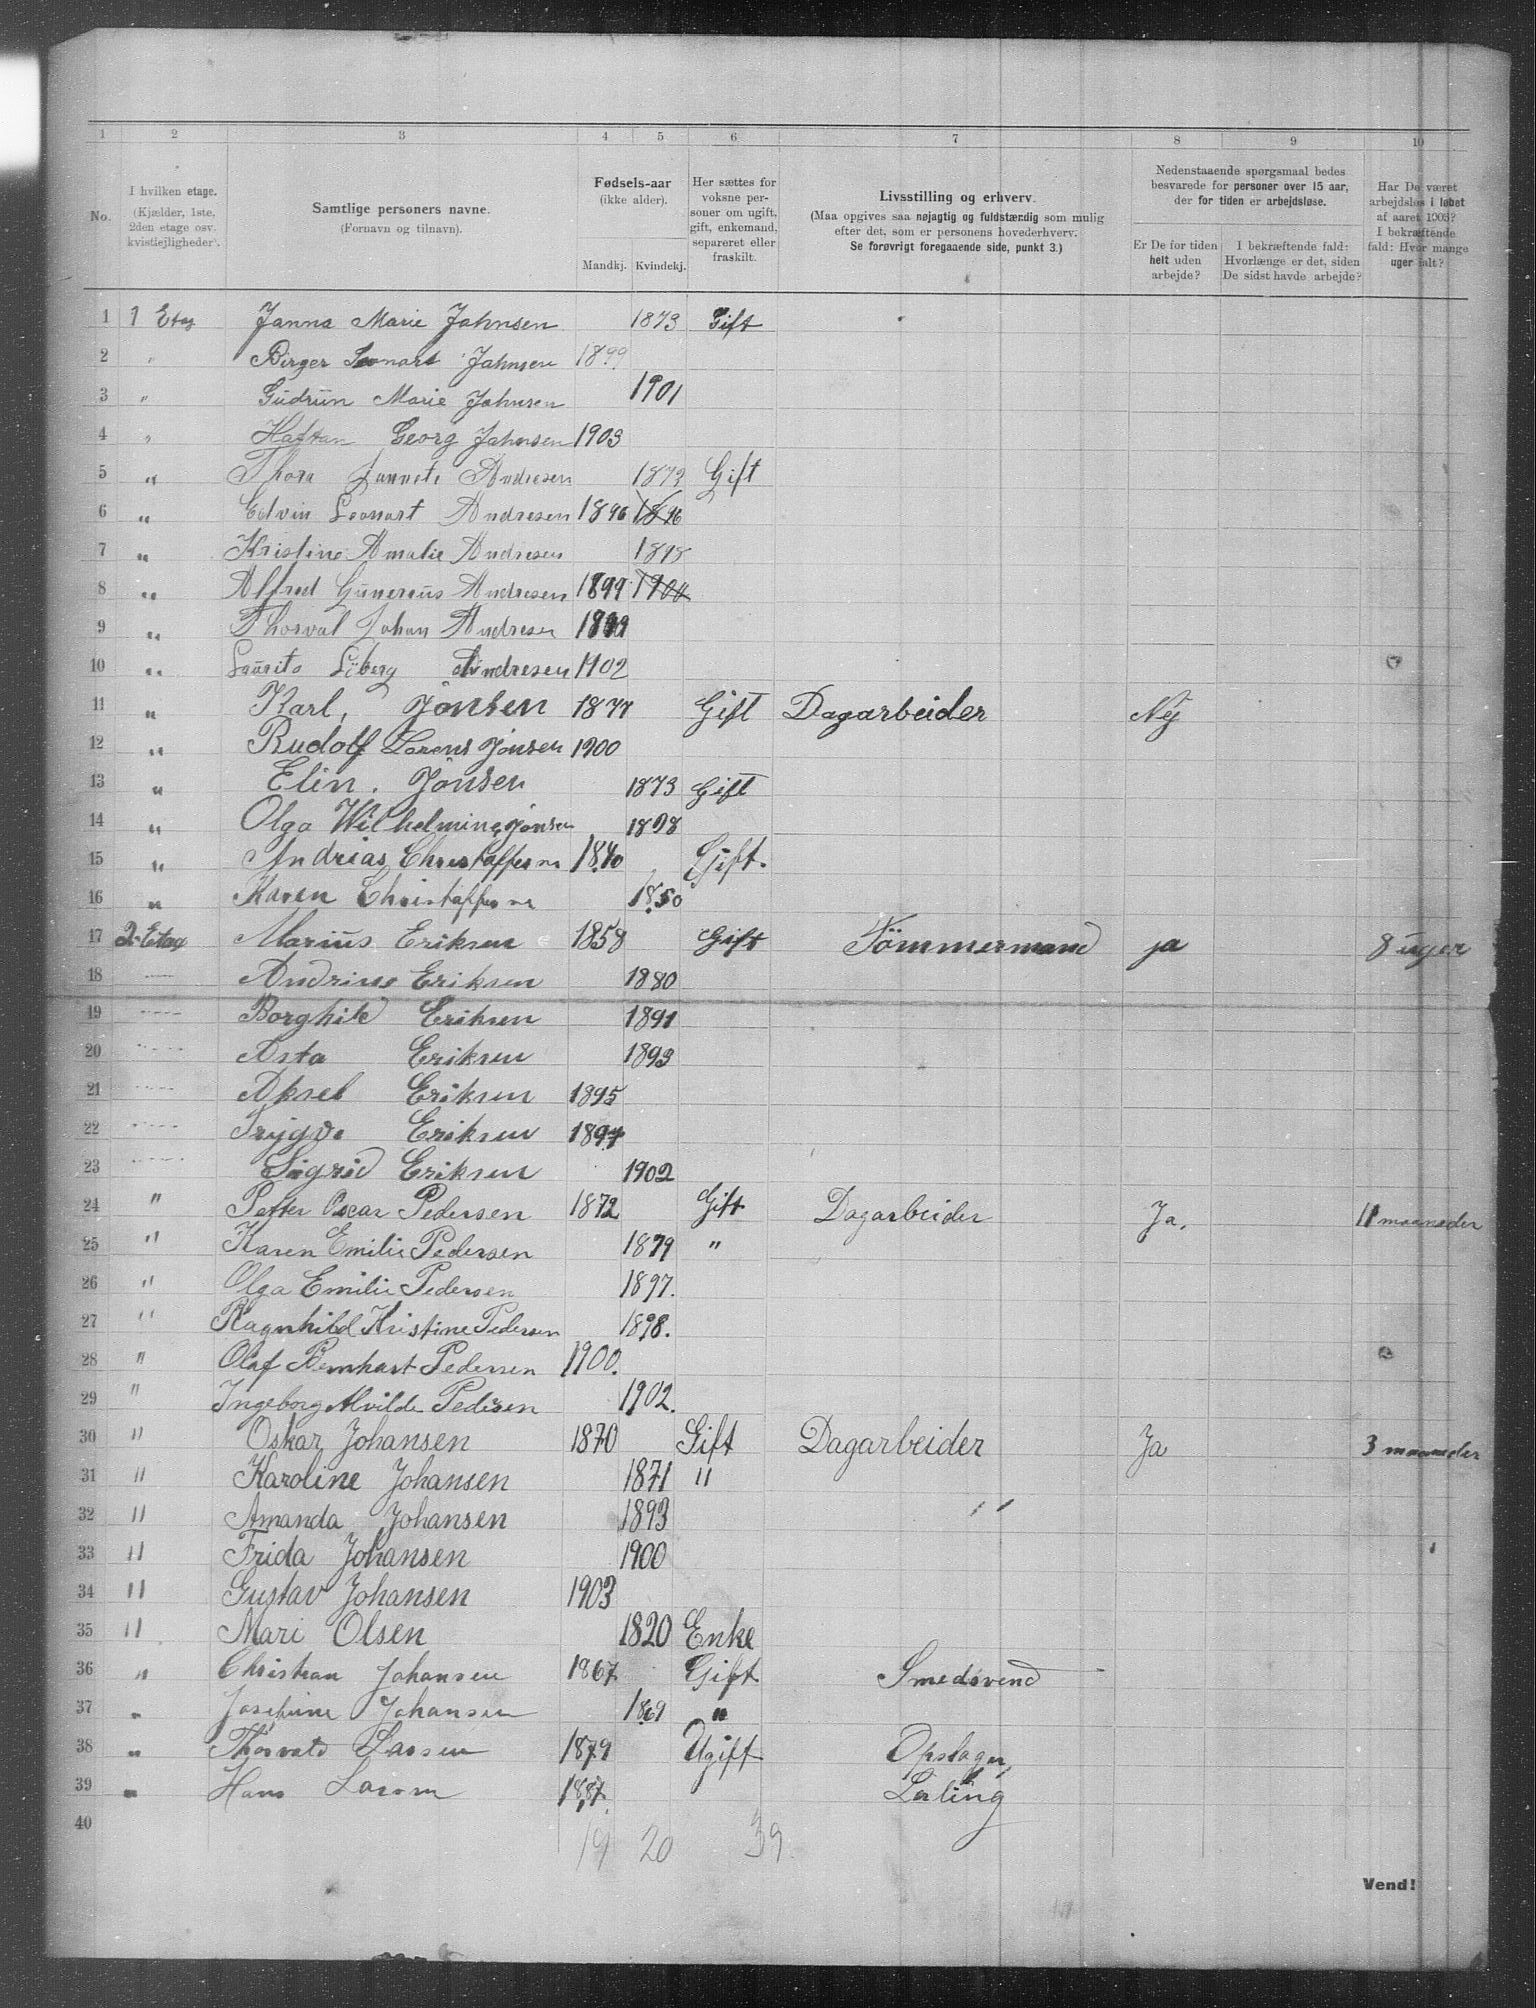 1 2 3 4 5 6 7 8 9 10
No.
I hvilken etage. (Kjælder, 1ste, 2den etage osv. kvistleiligheder).
Samtlige personers navne. (Fornavn og tilnavn).
Fødsels-aar (ikke alder). Mandkj. Kvindekj.
Her sættes for voksne personer om ugift, gift, enkemand, separeret eller fraskilt.
Livsstilling og erhverv. (Maa opgives saa nøjagtig og fuldstændig som mulig efter det, som er personens hovederhverv. Se forøvrigt foregaaende side, punkt 3.)
Nedenstaaende spørgsmaal bedes besvarede for personer over 15 aar, der for tiden er arbejdsløse.
Er De for tiden helt uden arbejde?
I bekræftende fald: Hvorlænge er det, siden De sidst havde arbejde?
Har De været arbejdsløs i løbet af aaret 1903? I bekræftende fald: Hvor mange uger ialt?
1 1 Etag Janna Marie Jahnsen 1873 Gift
2 " Birger Leonart Jahnsen 1899
3 " Gudrun Marie Jahnsen 1901
4 " Haftan Georg Jahnsen 1903
5 " Thora Jannete Andresen 1873 Gift
6 " Edvin Leonart Andresen 1896 1896
7 " Kristine Amalie Andresen 1898
8 " Alfred Gunerius Andresen 1899 1900
9 " Thorval Johan Andresen
10 " Laurits Andresen 1902
11 " Karl, Jonsen 1877 Gift Dagarbeider Nej
12 " Rudolf Lorens Jonsen 1900
13 " Elin. Jonsen 1873 Gift
14 " Olga Wilhelmine Jonsen 1898
15 " Andrias Christaffersn 1840 Gift.
16 " Karen Christaffersn 1850
17 2. Etag Marius Eriksen 1858 Gift Tömmermand ja 8 uger
18 — Andrine Eriksen 1880
19 ---- Borghild Eriksen 1891
20 ---- Asta Eriksen 1893
21 ---- Aksel Eriksen 1895
22 ---- Trygve Eriksen 1897
23 ---- Sigrid Eriksen 1902
24 " Petter Oscar Pedersen 1872 Gift Dagarbeider Ja. 11 maaneder
25 " Karen Emilie Pedersen 1879 "
26 " Olga Emilie Pedersen 1897.
27 " Ragnhild Kristine Pedersen 1898.
28 " Olaf Bernhart Pedersen 1900.
29 " Ingeborg Alvilde Pedersen 1902.
30 " Oskar Johansen 1870 Gift Dagarbeider Ja 3 maaneder
31 " Karoline Johansen 1871 "
32 " Amanda Johansen 1893
33 " Frida Johansen 1900
34 " Gustav Johansen 1903
35 " Mari Olsen 1820 Enke
36 " Christian Johansen 1867 Gift Smedsvend
37 " Josefine Johansen 1869 "
38 " Thorvald Larsen 1879 Ugift Opslager,
39 " Hans Larsen 1887. Lerling
40
19 20 39.
Vend!